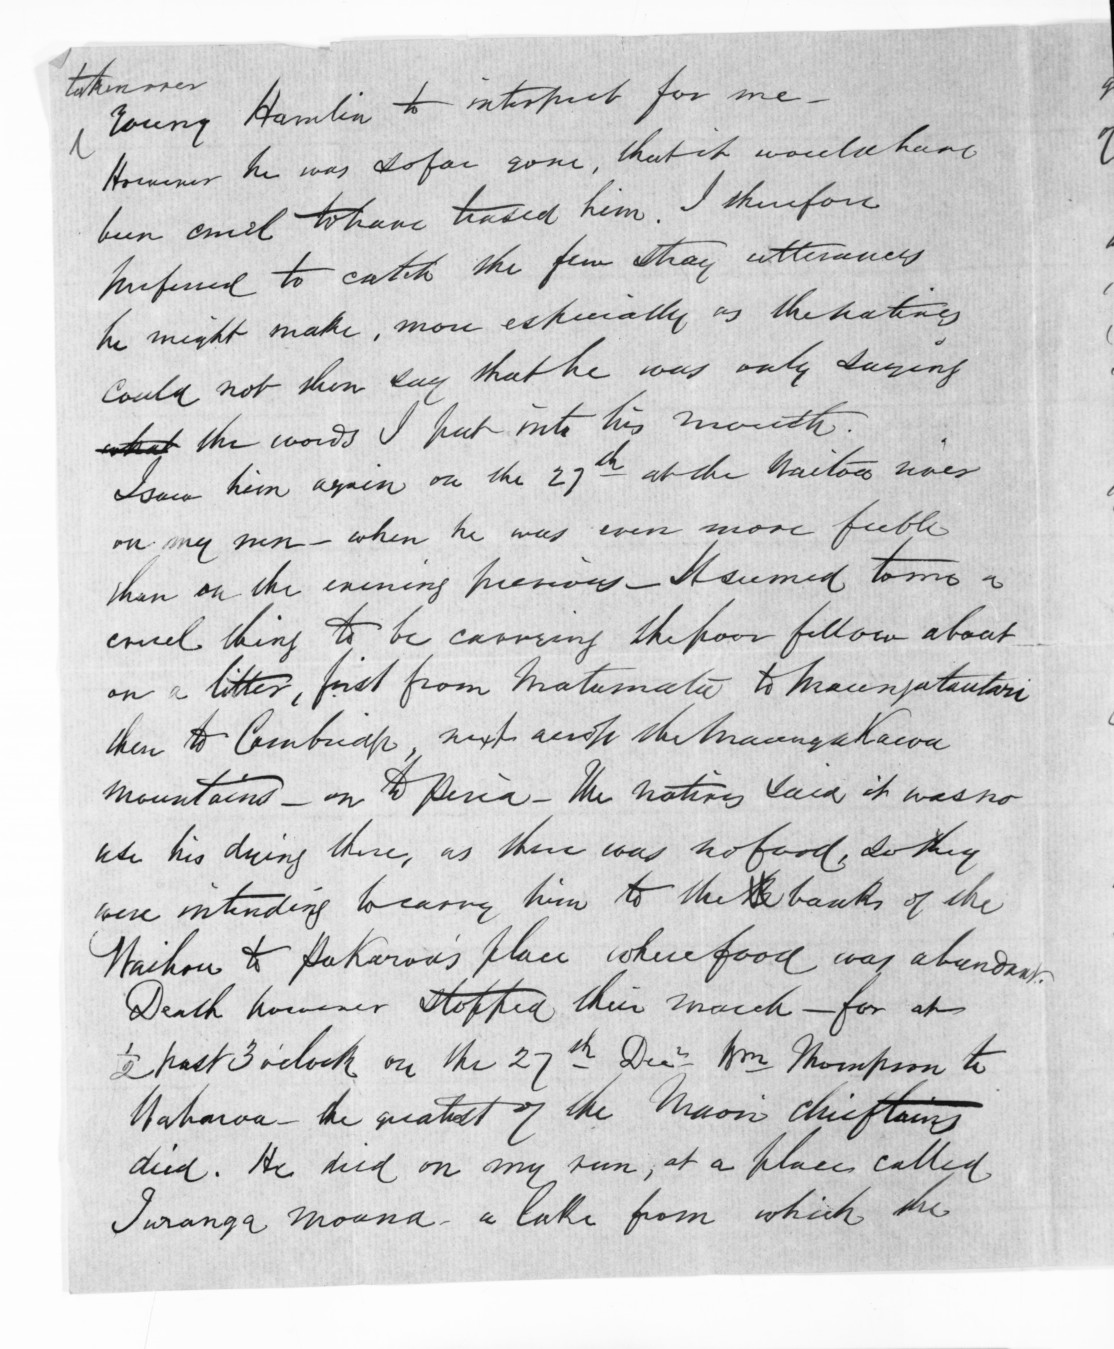 taken over
Young Hamlin to interpret for me -
However he was so far gone, that it would have
been cruel to have teased him. I therefore
preferred to catch the few stray utterances
he might make, more especially as the natives
could not then say that he was only saying
what the words I put into his mouth.
I saw him again on the 27th at the Waitoa river
on my run - when he was even more feeble
than on the evening previous - It seemed to me a
cruel thing to be carrying the poor fellow about
on a litter, first from Matamata to Maungatautari
then to Cambridge, next across the Maungakawa
mountains - on to Peria - The natives said it was no
use his dying there, as there was no food, so they
were intending to carry him to the banks of the
Waihou to place where food was abundant.
Death however stopped their march - for at
½ past 3 o'clock on the 27th Decr Wm Thompson te
Waharoa - the greatest of the Maori chieftains
died. He died on my run, at a place called
Turanga moana - a lake from which the